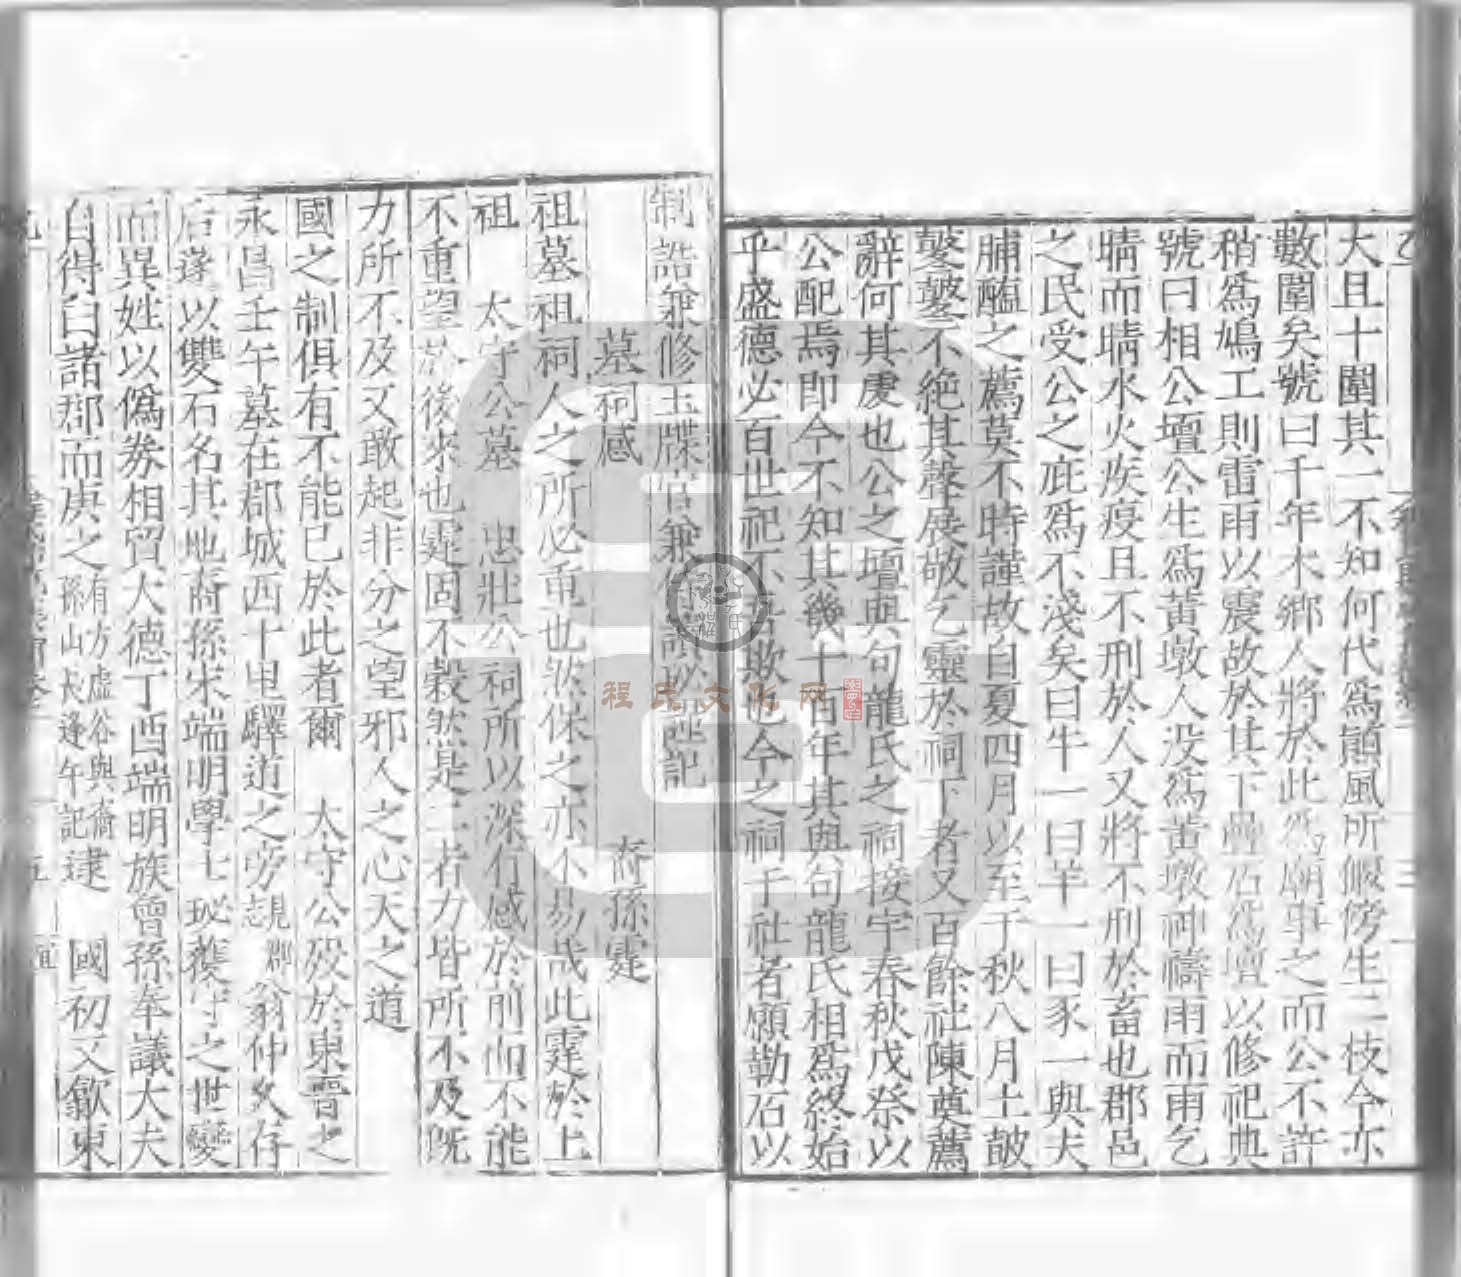 大且十圍其一不知何代爲顛風所偃傍生二枝今亦
數圍矣號曰千年木鄉人將於此爲廟事之而公不許
稍爲鳩工則雷雨以震故於其下疊石爲壇以修祀典
號曰相公壇公生爲黃墩人没爲黃墩神禱雨而雨乞
晴而晴水火疾疫且不刑於人又將不刑於畜也郡邑
之民受公之庇爲不淺矣曰牛一曰羊一曰豕一與夫
脯醢之薦莫不時謹故自夏四月以至于秋八月土皷
鼕鼕不絶其聲展敬乞靈於祠下者又百餘社陳奠薦
辭何其虔也公之壇與句龍氏之祠接宇春秋戊祭以
公配焉即今不知其幾千百年其與句龍氏相爲終始
乎盛德必百世祀不吾欺也今之祠于社者願勒石以
制誥兼修玉牒官兼侍讀珌謹記
墓祠感
裔孫霆
祖墓祖祠人之所必重也然保之亦不易哉此霆於上
祖 太守公墓 忠壯公祠所以深有感於前而不能
不重望於後來也霆固不穀然是二者力皆所不及既
力所不及又敢起非分之望邪人之心天之道
國之制俱有不能已於此者爾 太守公殁於東晋之
永昌壬午墓在郡城西十里驛道之旁 郡 翁仲久存
后蓬以雙石名其地裔孫宋端明學士珌 之世變
而異姓以僞券相貿大德丁酉端明族曾孫奉議大夫
自得白諸郡而庚之有方虛谷與齋孫山大逢午記逮 國初又歙東
程氏文化网